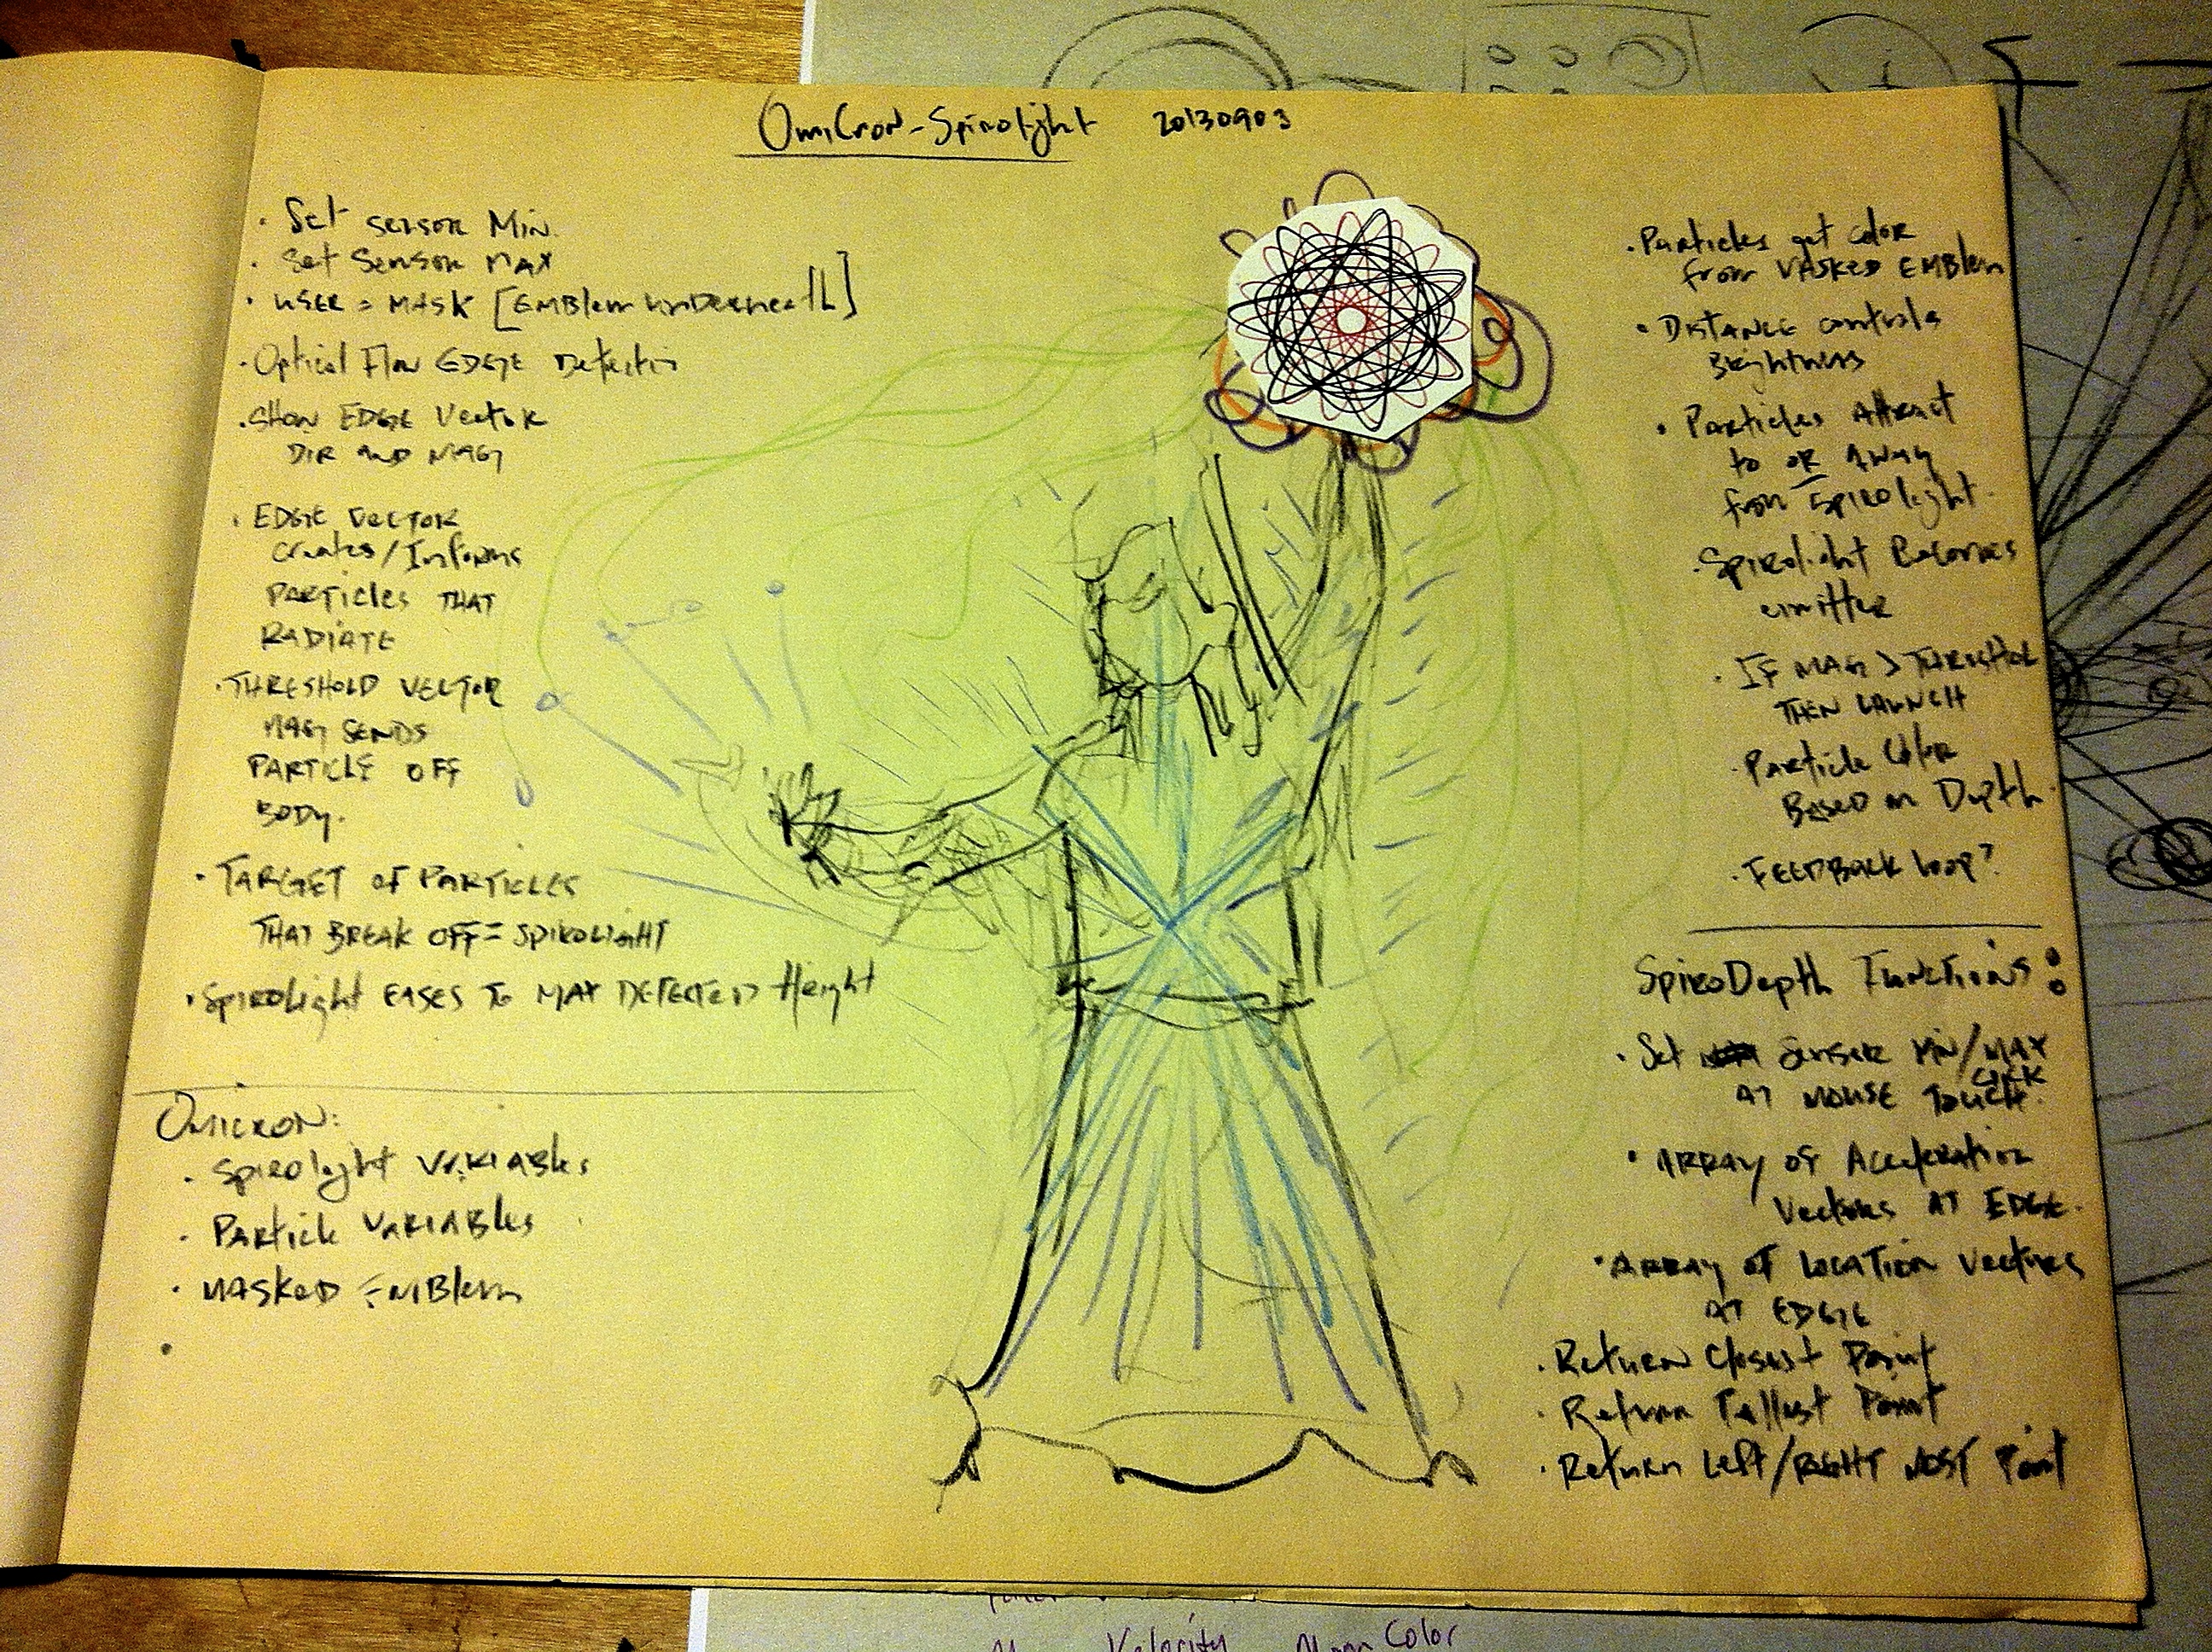 OmiCron-Spirolight 20130903
· Set sensor Min.
· Set Sensor MAX
· USER = MASK [EMBlem underneath]
· Optical Flow EDGE Detection
· SHOW EDGE Vector
DIR and MAG
· EDGE VECTOR
Creates/Informs
PARTICLES THAT
RADIATE
· THRESHOLD VECTOR
MAG SENDS
PARTICLE OFF
BODY.
· TARGET OF PARTICLES
THAT BREAK OFF = SPIROLIGHT
· SPIROLIGHT EASES TO MAX DETECTED Height
OMICRON:
· Spirolight VARIABLES
· Particle VARIABLES
· MASKED EMBlem
·
· Particles get color
from MASKED EMBlem
· DISTANCE controls
Brightness
· Particles Attract
to OR AWAY
from Spirolight.
· Spirolight Becomes
emitter
· IF MAG > THRESHOL
THEN LAUNCH
· Particle Color
BASED on Depth.
· FEEDBACK loop?
SpiroDepth Functions:
· Set sensor MIN/MAX
AT MOUSE CLICK
TOUCH.
· ARRAY OF Acceleration
Vectors AT EDGE.
· ARRAY OF LOCATION Vectors
AT EDGE
· Return Closest Point
· Return Tallest Point
· Return Left/RIGHT MOST Point
Velocity
Color